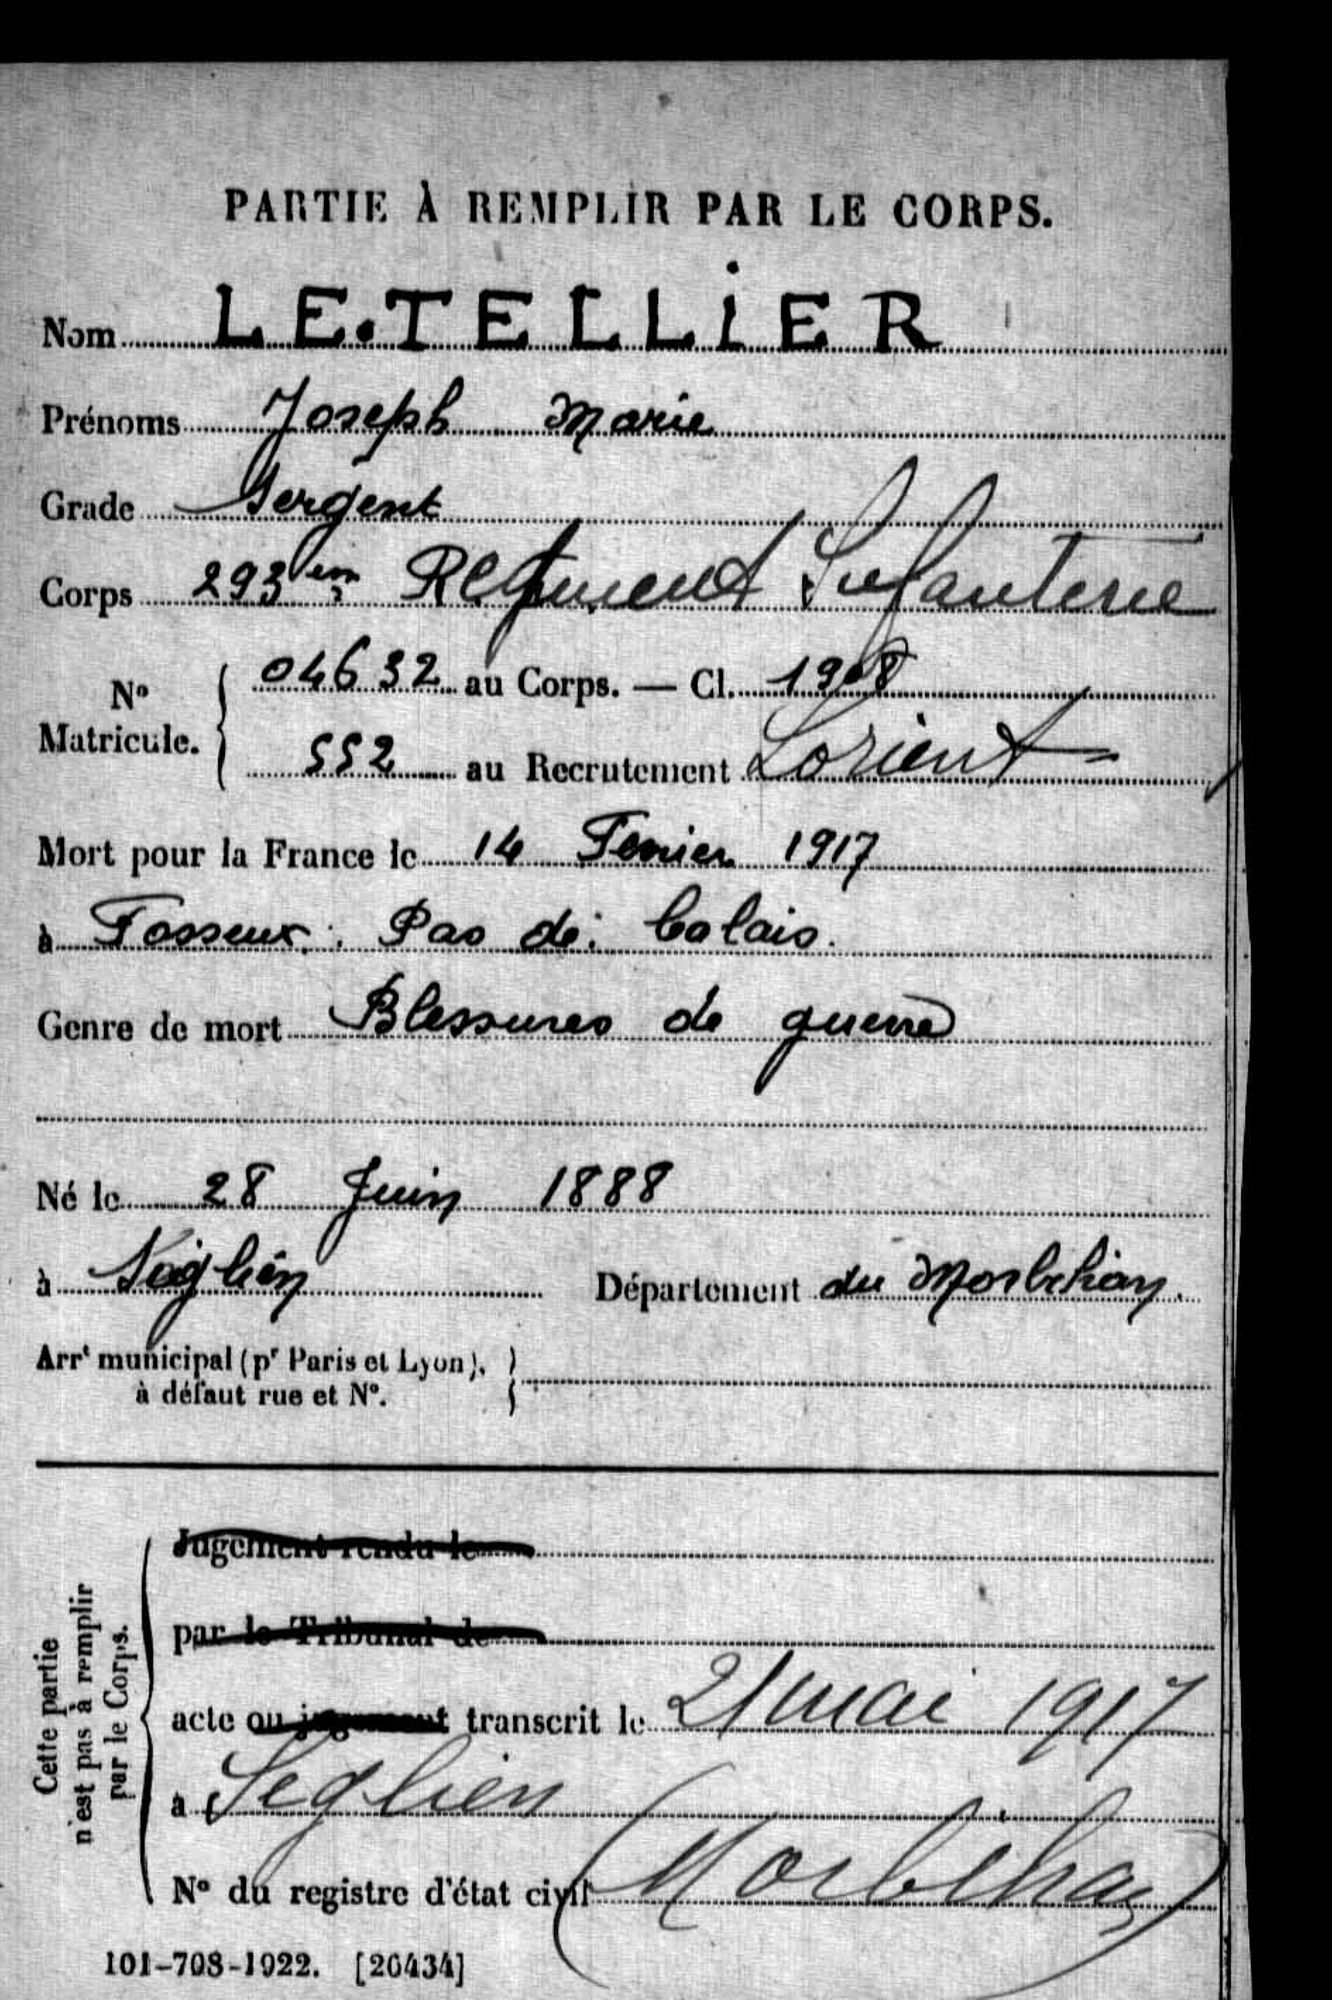 PARTIE À REMPLIR PAR LE CORPS.
Nom LE.TELLiER
Prénoms Joseph Marie
Grade Sergent
Corps 293em Regiment Infanterie
No Matricule. { 04632 au Corps. — Cl. 1908
552 au Recrutement Lorient
Mort pour la France le 14 Fevrier 1917
à Fosseux. Pas de Calais.
Genre de mort Blessures de guerre
Né le 28 Juin 1888
à Séglien Département du Morbihan.
Arrt municipal (pr Paris et Lyon), }
à défaut rue et No.
Cette partie
n'est pas à remplir
par le Corps.
Jugement rendu le
par le Tribunal de
acte ou jugement transcrit le 21 mai 1917
à Seglien
No du registre d'état civil (Morbihan)
101-708-1922. [26434]